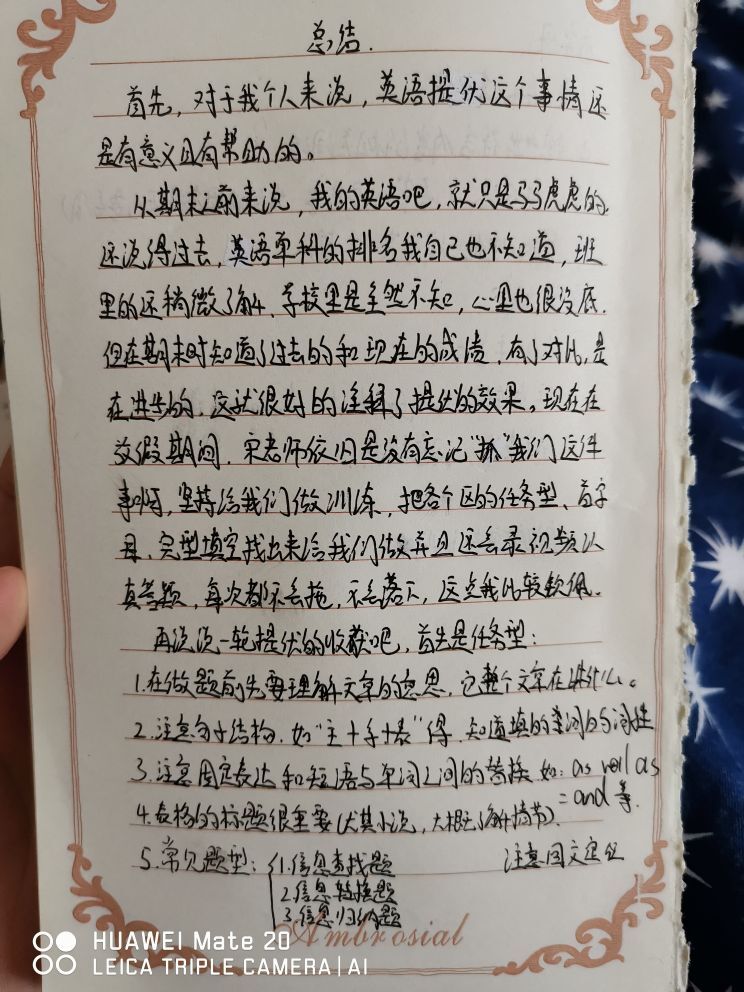 总结.
首先,对于我个人来说,英语提优这个事情还
是有意义且有帮助的。
从期末之前来说,我的英语吧,就只是马马虎虎的,
还说得过去,英语单科的排名我自己也不知道,班
里的还稍微了解,学校里是全然不知,心里也很没底.
但在期末时知道了过去的和现在的成绩,有了对比,是
在进步的,这就很好的注释了提优的效果。现在在
放假期间,宋老师依旧是没有忘记"抓"我们这件
事啊,坚持给我们做训练,把各个区的任务型、首字
母、完型填空找出来给我们做并且还会录视频以
真答题,每次都不会拖,不会落下,这点我比较钦佩.
再说说一轮提优的收获吧,首先是任务型:
1.在做题前先要理解文章的意思,它整个文章在讲什么。
2.注意句子结构,如"主+系+表"得,知道填的单词的词性
3.注意固定表达和短语与单词之间的替换 如: as well as
= and 等.
4.表格的标题很重要(尤其小说,大概了解情节).
5.常见题型: 1.信息查找题 注意回文定位
2.信息转换题
3.信息归纳题
Ambrosial
HUAWEI Mate 20
LEICA TRIPLE CAMERA | AI